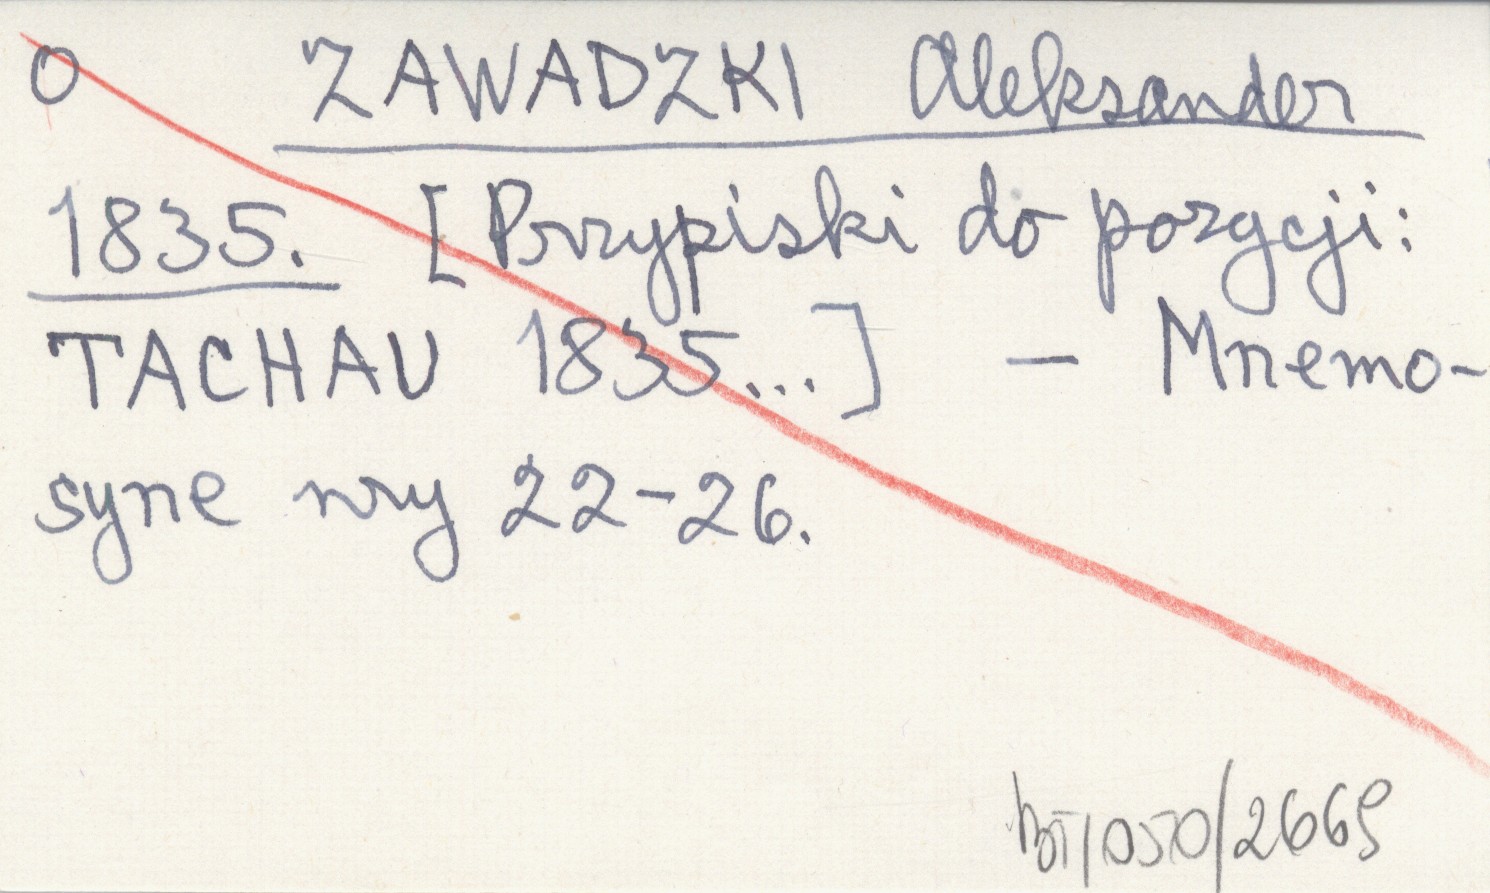 O ZAWADZKI Aleksander
1835. [Przypiski do pozycji:
TACHAU 1835...] — Mnemo-
syne nry 22-26.
BT/050/2669